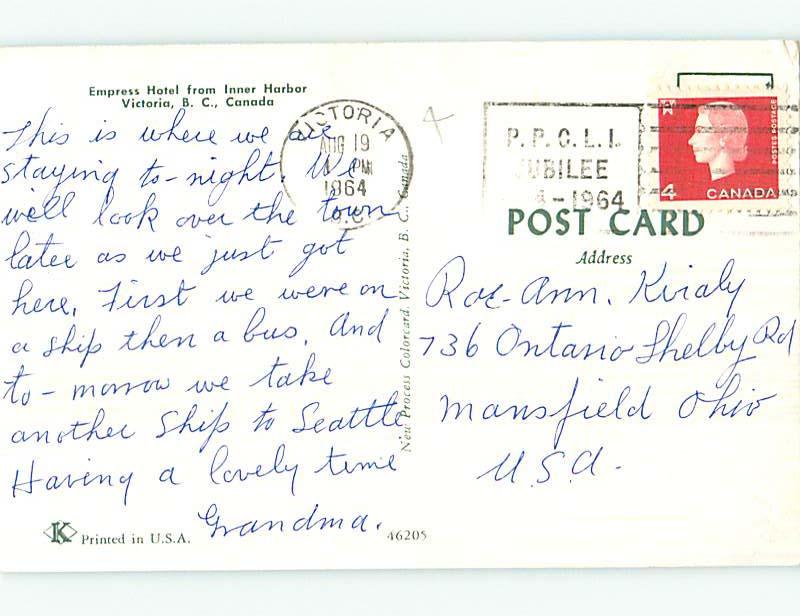 Empress Hotel from Inner Harbor
Victoria, B. C., Canada
This is where we are
staying to-night. We
we'll look over the town
later as we just got
here. First we were on
a ship then a bus. And
to-morrow we take
another ship to Seattle
Having a lovely time
Grandma.
K Printed in U.S.A.
46205
New Process Colorcard, Victoria, B. C., Canada
VICTORIA
AUG 19
PM
1964
B.C.
P.P.C.L.I.
JUBILEE
- 1964
POSTES POSTAGE
4 CANADA
POST CARD
Address
Roe-Ann. Kiraly
736 Ontario Shelby Rd
Mansfield Ohio
U.S.A.